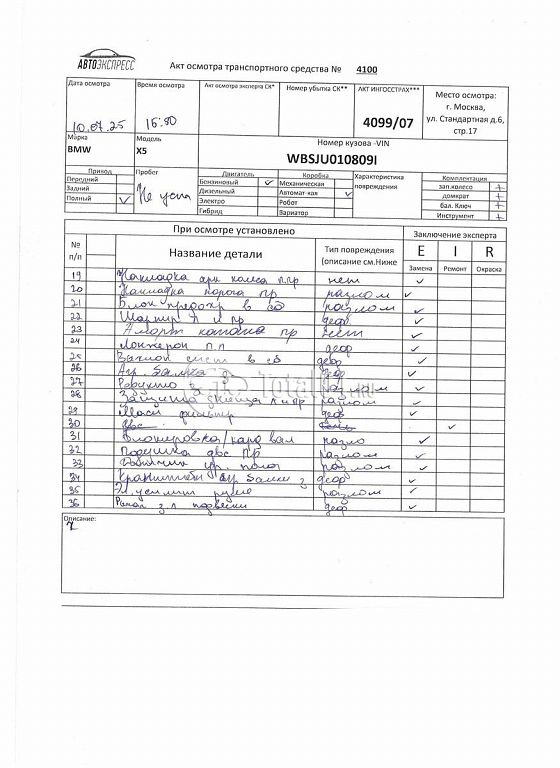 АВТОЭКСПРЕСС
Акт осмотра транспортного средства № 4100
Дата осмотра Время осмотра Акт осмотра эксперта СК* Номер убытка СК** АКТ ИНГОССТРАХ*** Место осмотра:
г. Москва,
ул. Стандартная д.6,
стр.17
10.07.25 4099/07
Марка Модель Номер кузова -VIN
BMW X5 WBSJU010809I
Привод Пробег Двигатель Коробка Характеристика повреждения Комплектация
Передний Бензиновый ✓ Механическая зап.колесо +
Задний Дизельный Автомат-кая ✓ домкрат +
Полный ✓ Не уст Электро Робот бал. Ключ +
Гибрид Вариатор Инструмент +
При осмотре установлено Заключение эксперта
№ п/п Название детали Тип повреждения (описание см.Ниже E I R
Замена Ремонт Окраска
19 Накладка арк колеса п.пр нет ✓
20 Накладка порога пр разлом ✓
21 Блок предохр в сб разлом ✓
22 Шарнир л и пр деф ✓
23 Аморт капота пр нет ✓
24 Лонжерон п.п деф ✓
25 в сб деф ✓
26 балка деф ✓
27 разлом ✓
28 Защита днища л и пр разлом ✓
29 фильтр деф ✓
30 двс ✓
31 Блокировка/кард вал разло ✓
32 Подушка двс пр разлом ✓
33 разлом ✓
34 Кронштейн балки з деф ✓
35 Эл. усилит разлом ✓
36 з л подвески деф ✓
Описание:
TotalCar.RU